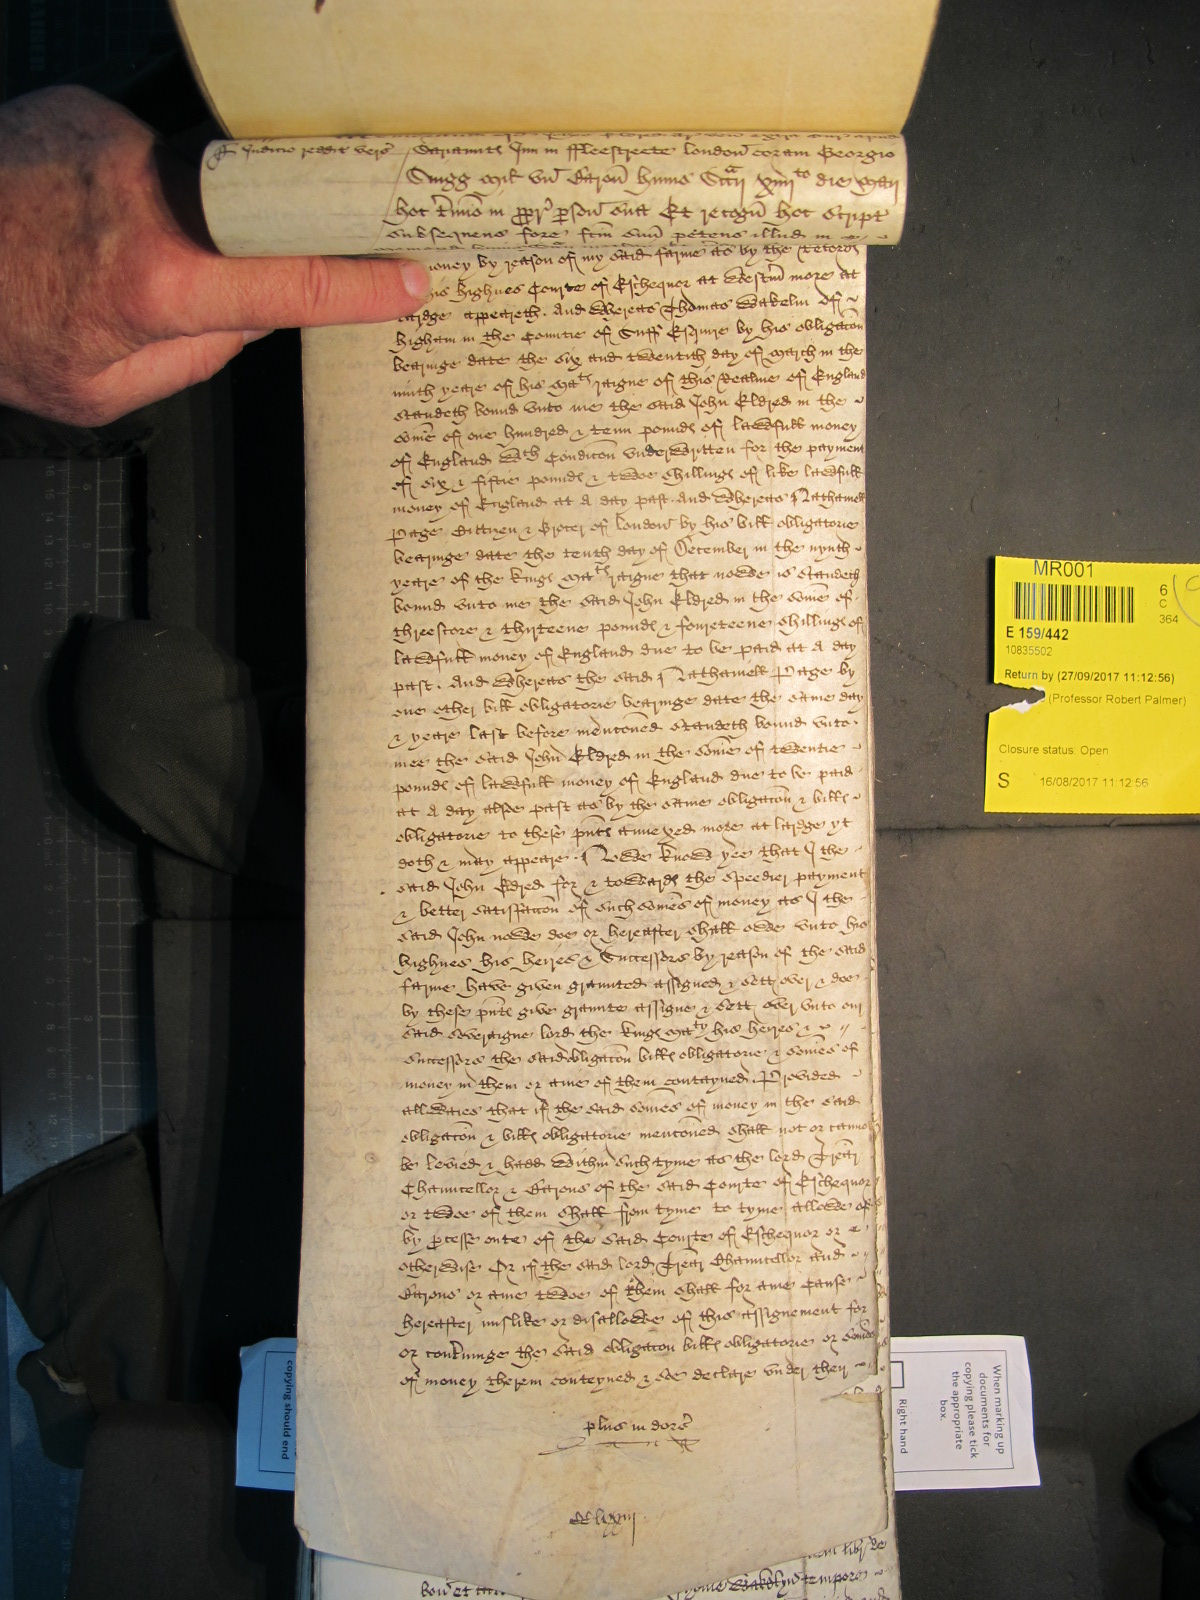 Judicio reddit vers Sarariants Inn in ffleestreete London coram Georgio
Snigg mil un Baron huius Sccarii xiiiito die Maii
hoc in propr person sua Et recogn hoc script
subsequens fore fcm suu petens illud in
money by reason of my said farme as by the Recordes
his highnes Courte of Eschequor at Westm more at
lardge appeareth. And Whereas Thomas Wakelin of
higham in the Countie of Suff Esquire by his obligacon
bearinge date the six and twentith day of March in the
ninth yeare of his Maties raigne of this Realme of England
standeth bound unto me the said John Eldred in the
some of one hundred & tenn poundes of lawfull money
of England wth Condicon underwritten for the payment
of six & fiftie poundes & twoe shillings of like lawfull
money of England at a day past. And Whereas Nathaniell
Page Cittizen & Grocer of London by his bill obligatorie
bearinge date the tenth day of December in the nynth
yeare of the kinges Maties raigne that nowe is standeth
bound unto me the said John Eldred in the some of
threescore & thirteene poundes & foureteene shillings of
lawfull money of England due to be paid at a day
past. And Whereas the said Nathaniell Page by
one other bill obligatorie bearinge date the same day
& yeare last before mencioned standeth bound unto
mee the said John Eldred in the some of twentie
poundes of lawfull money of England due to be paid
at a day alsoe past as by the same obligacon & billes
obligatorie to these pntes annexed more at lardge yt
doth & may appeare. Nowe knowe yee that I the
said John Eldred for & towardes the speedier payment
& better satisfaccon of such somes of money as I the
said John nowe doe or hereafter shall owe unto his
highnes his heires & Successors by reason of the said
farme have given graunted assigned & sett over & doe
by these pntes give graunte assigne & sett over unto our
said soveraigne lord the kinges Maty his heires &
successors the said obligacon billes obligatorie & somes of
money in them or anie of them contayned. Provided
allwaies that if the said somes of money in the said
obligacon & billes obligatorie mencioned shall not or cannot
be levied & hadd within such tyme as the lord Trear
Chauncellor & Barons of the said Courte of Eschequor
or twoe of them shall from tyme to tyme allowe of
by processe oute of the said Courte of Eschequor or
otherwise Or if the said lord Trear Chauncellor and
Barons or anie twoe of them shall for anie Cause
hereafter mislike or disallowe of this assignement for
or concerninge the said obligacon billes obligatorie or somes
of money therein conteyned & soe declare under their
plus in dors
clxxiii
MR001
6
C
364
E 159/442
10835502
Return by (27/09/2017 11:12:56)
(Professor Robert Palmer)
Closure status: Open
S 16/08/2017 11:12:56
When marking up
documents for
copying please tick
the appropriate
box.
Right hand
copying should end